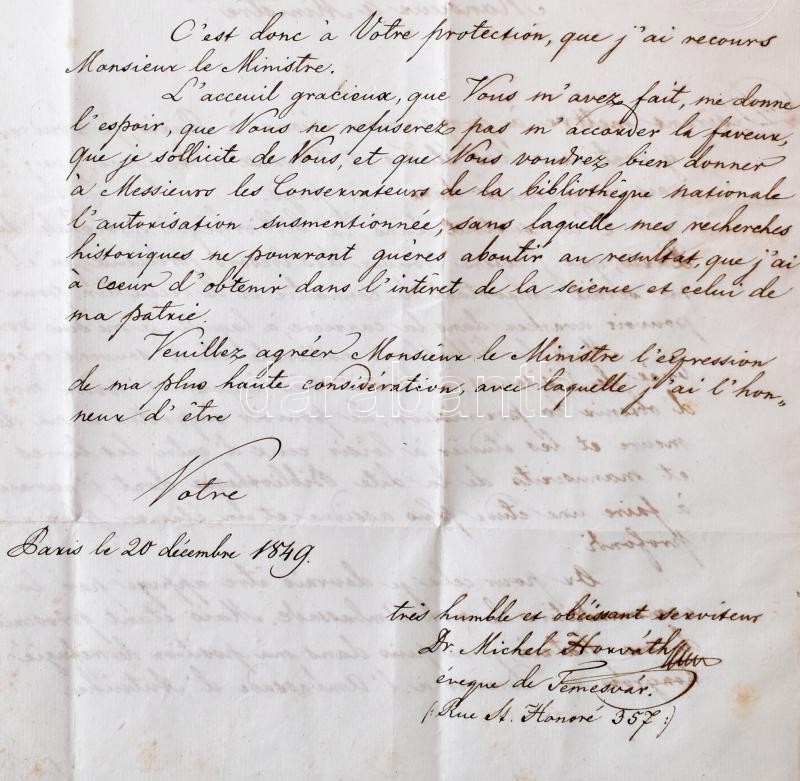 C'est donc à Votre protection, que j'ai recours
Monsieur le Ministre.
L'acceuil gracieux, que Vous m'avez fait, me donne
l'espoir, que Vous ne refuserez pas m'accorder la faveur,
que je sollicite de Vous, et que Vous voudrez bien donner
à Messieurs les Conservateurs de la bibliothèque nationale
l'autorisation susmentionnée, sans laquelle mes recherches
historiques ne pourront guères aboutir au resultat, que j'ai
à coeur d'obtenir dans l'intéret de la science et celui de
ma patrie.
Veuillez agréer Monsieur le Ministre l'expression
de ma plus haute considération, avec laquelle j'ai l'hon=
neur d'être
Votre
Paris le 20 décembre 1849.
très humble et obéissant serviteur
Dr. Michel Horváth
évegue de Temesvar.
(: Rue St. Honoré 357 :)
darabanth